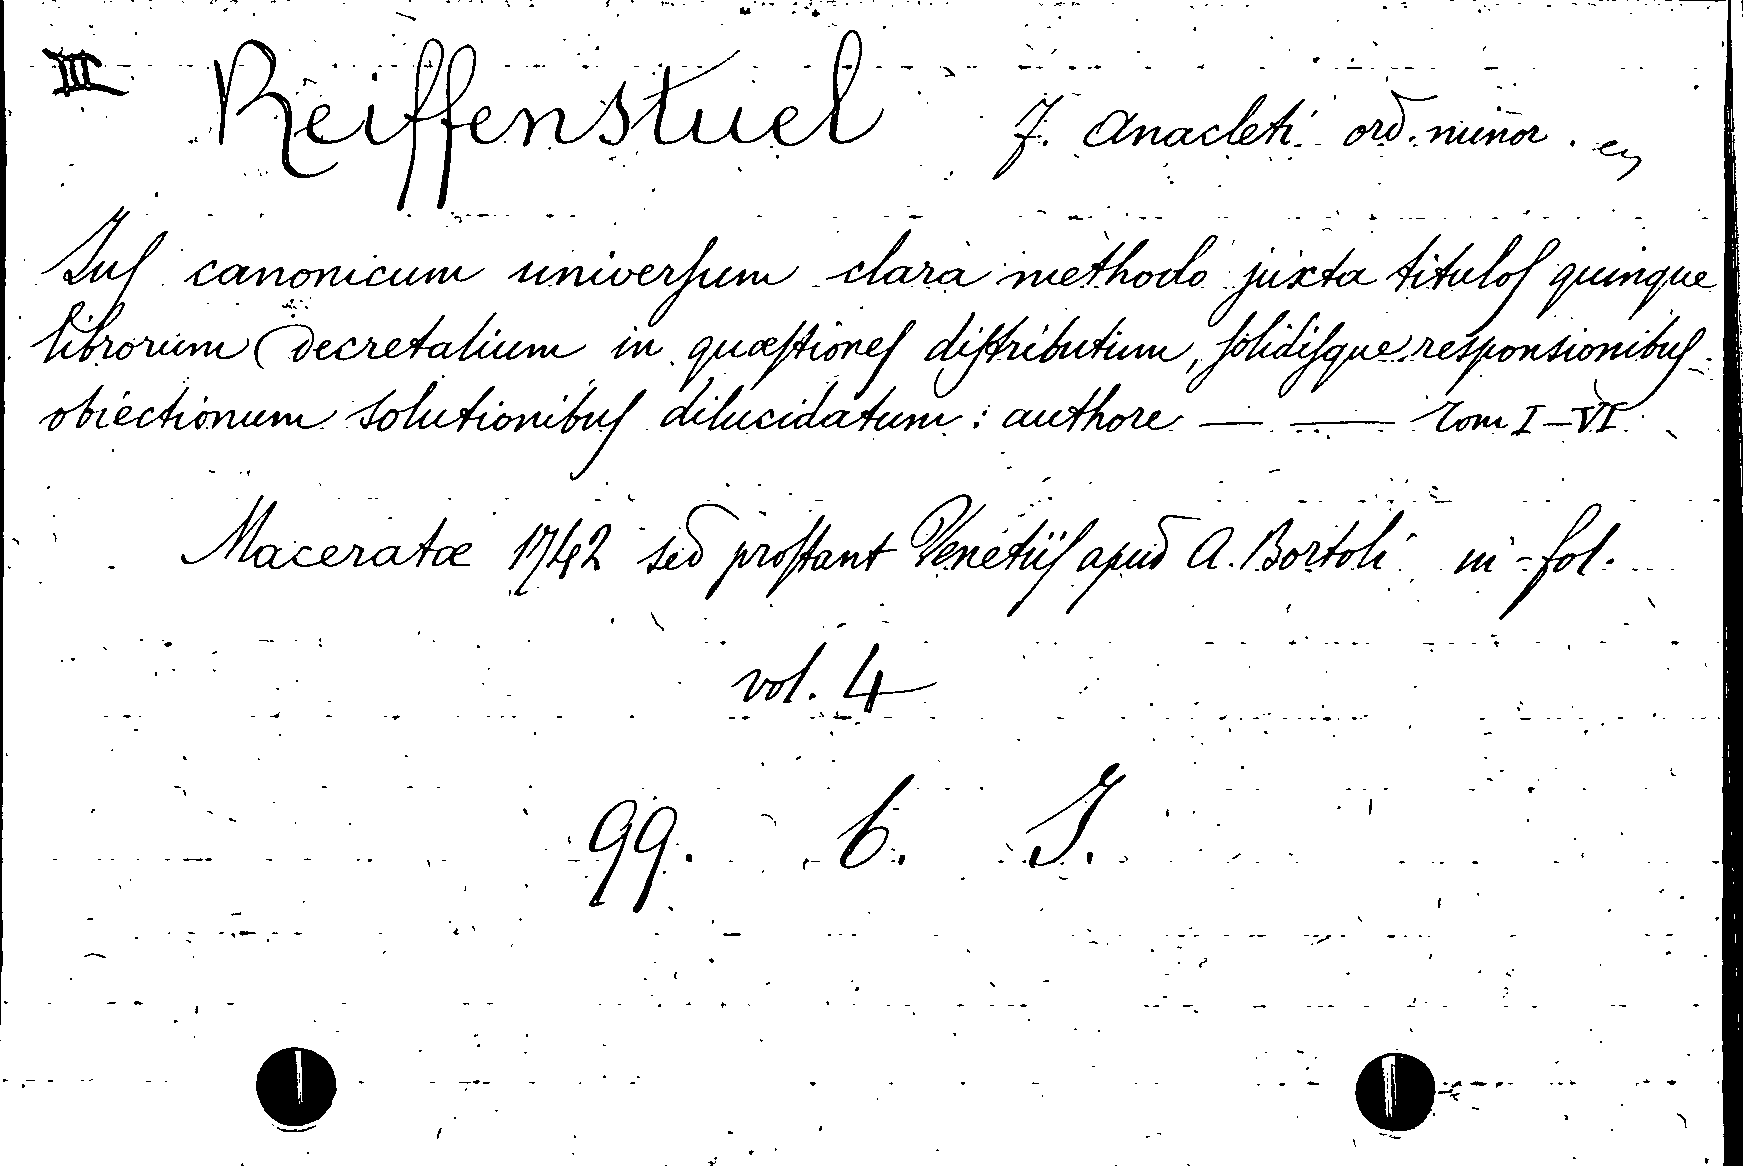 III Reiffenstuel F. Anacleti ord. minor.
Jus canonicum universum clara methodo juxta titulos quinque
librorum Decretalium in quæstiones distributum, solidisque responsionibus
obiectionum solutionibus dilucidatum: authore — — Tom I–VI
Maceratæ 1742 sed prostant Venetiis apud A. Bortoli in-fol.
vol. 4
99. 6. I.